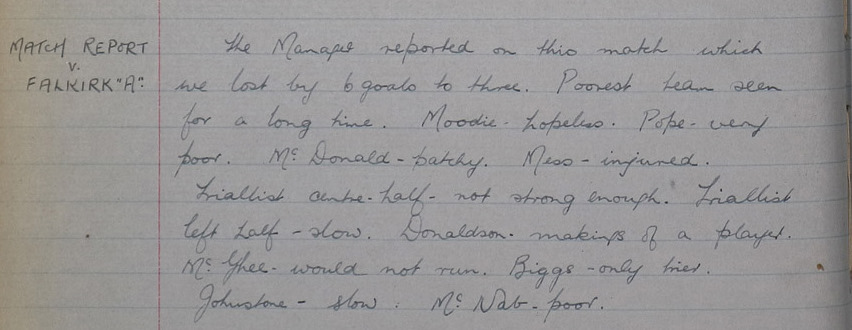 MATCH REPORT
v.
FALKIRK "A".
The Manager reported on this match which
we lost by 6 goals to three. Poorest team seen
for a long time. Moodie - hopeless. Pope - very
poor. Mc Donald - patchy. Mess - injured.
Triallist centre-half - not strong enough. Triallist
left half - slow. Donaldson - makings of a player.
Mc Ghee - would not run. Biggs - only trier.
Johnstone - slow. Mc Nab - poor.